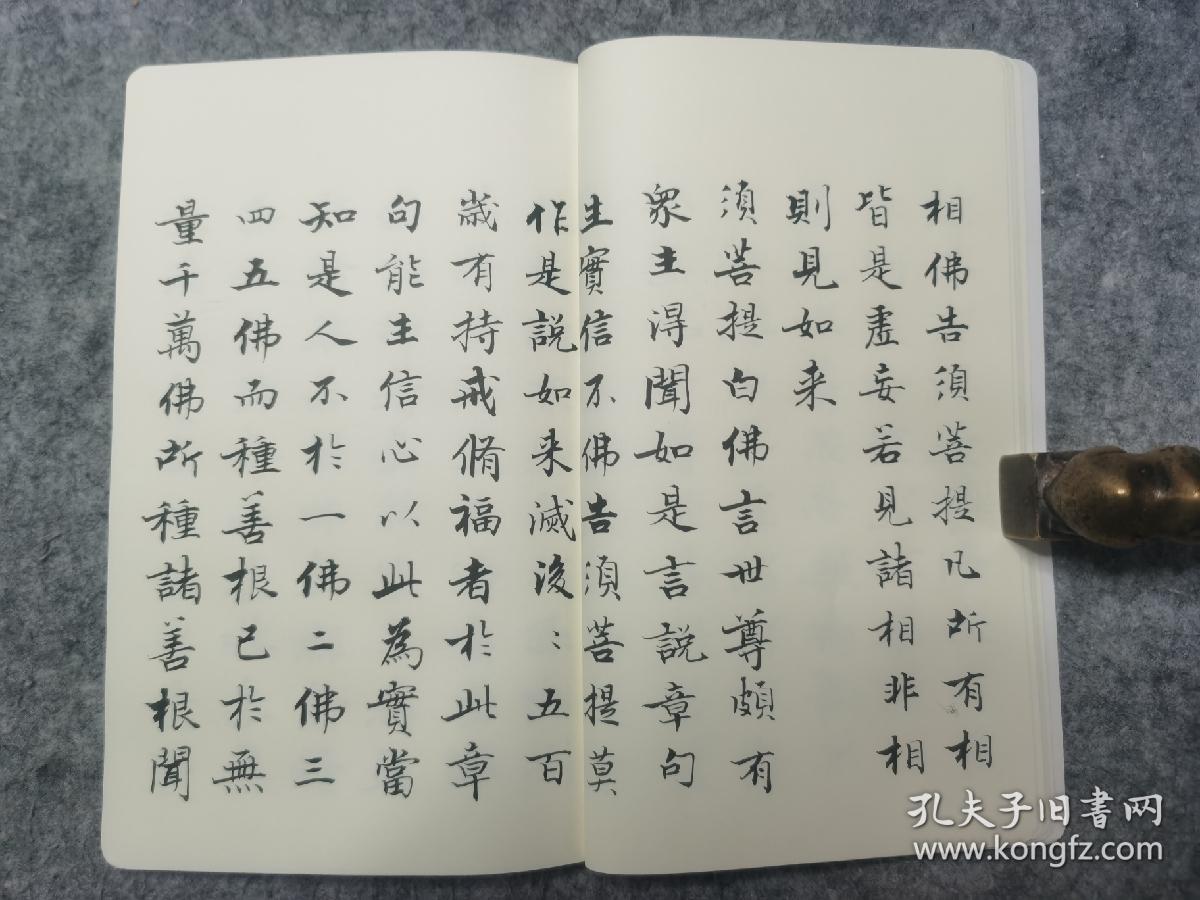 相佛告須菩提凡所有相
皆是虛妄若見諸相非相
則見如来
須菩提白佛言世尊頗有
衆生得聞如是言説章句
生實信不佛告須菩提莫
作是説如来滅後：五百
歲有持戒脩福者於此章
句能生信心以此為實當
知是人不於一佛二佛三
四五佛而種善根已於無
量千萬佛所種諸善根聞
孔夫子旧書网
www.kongfz.com